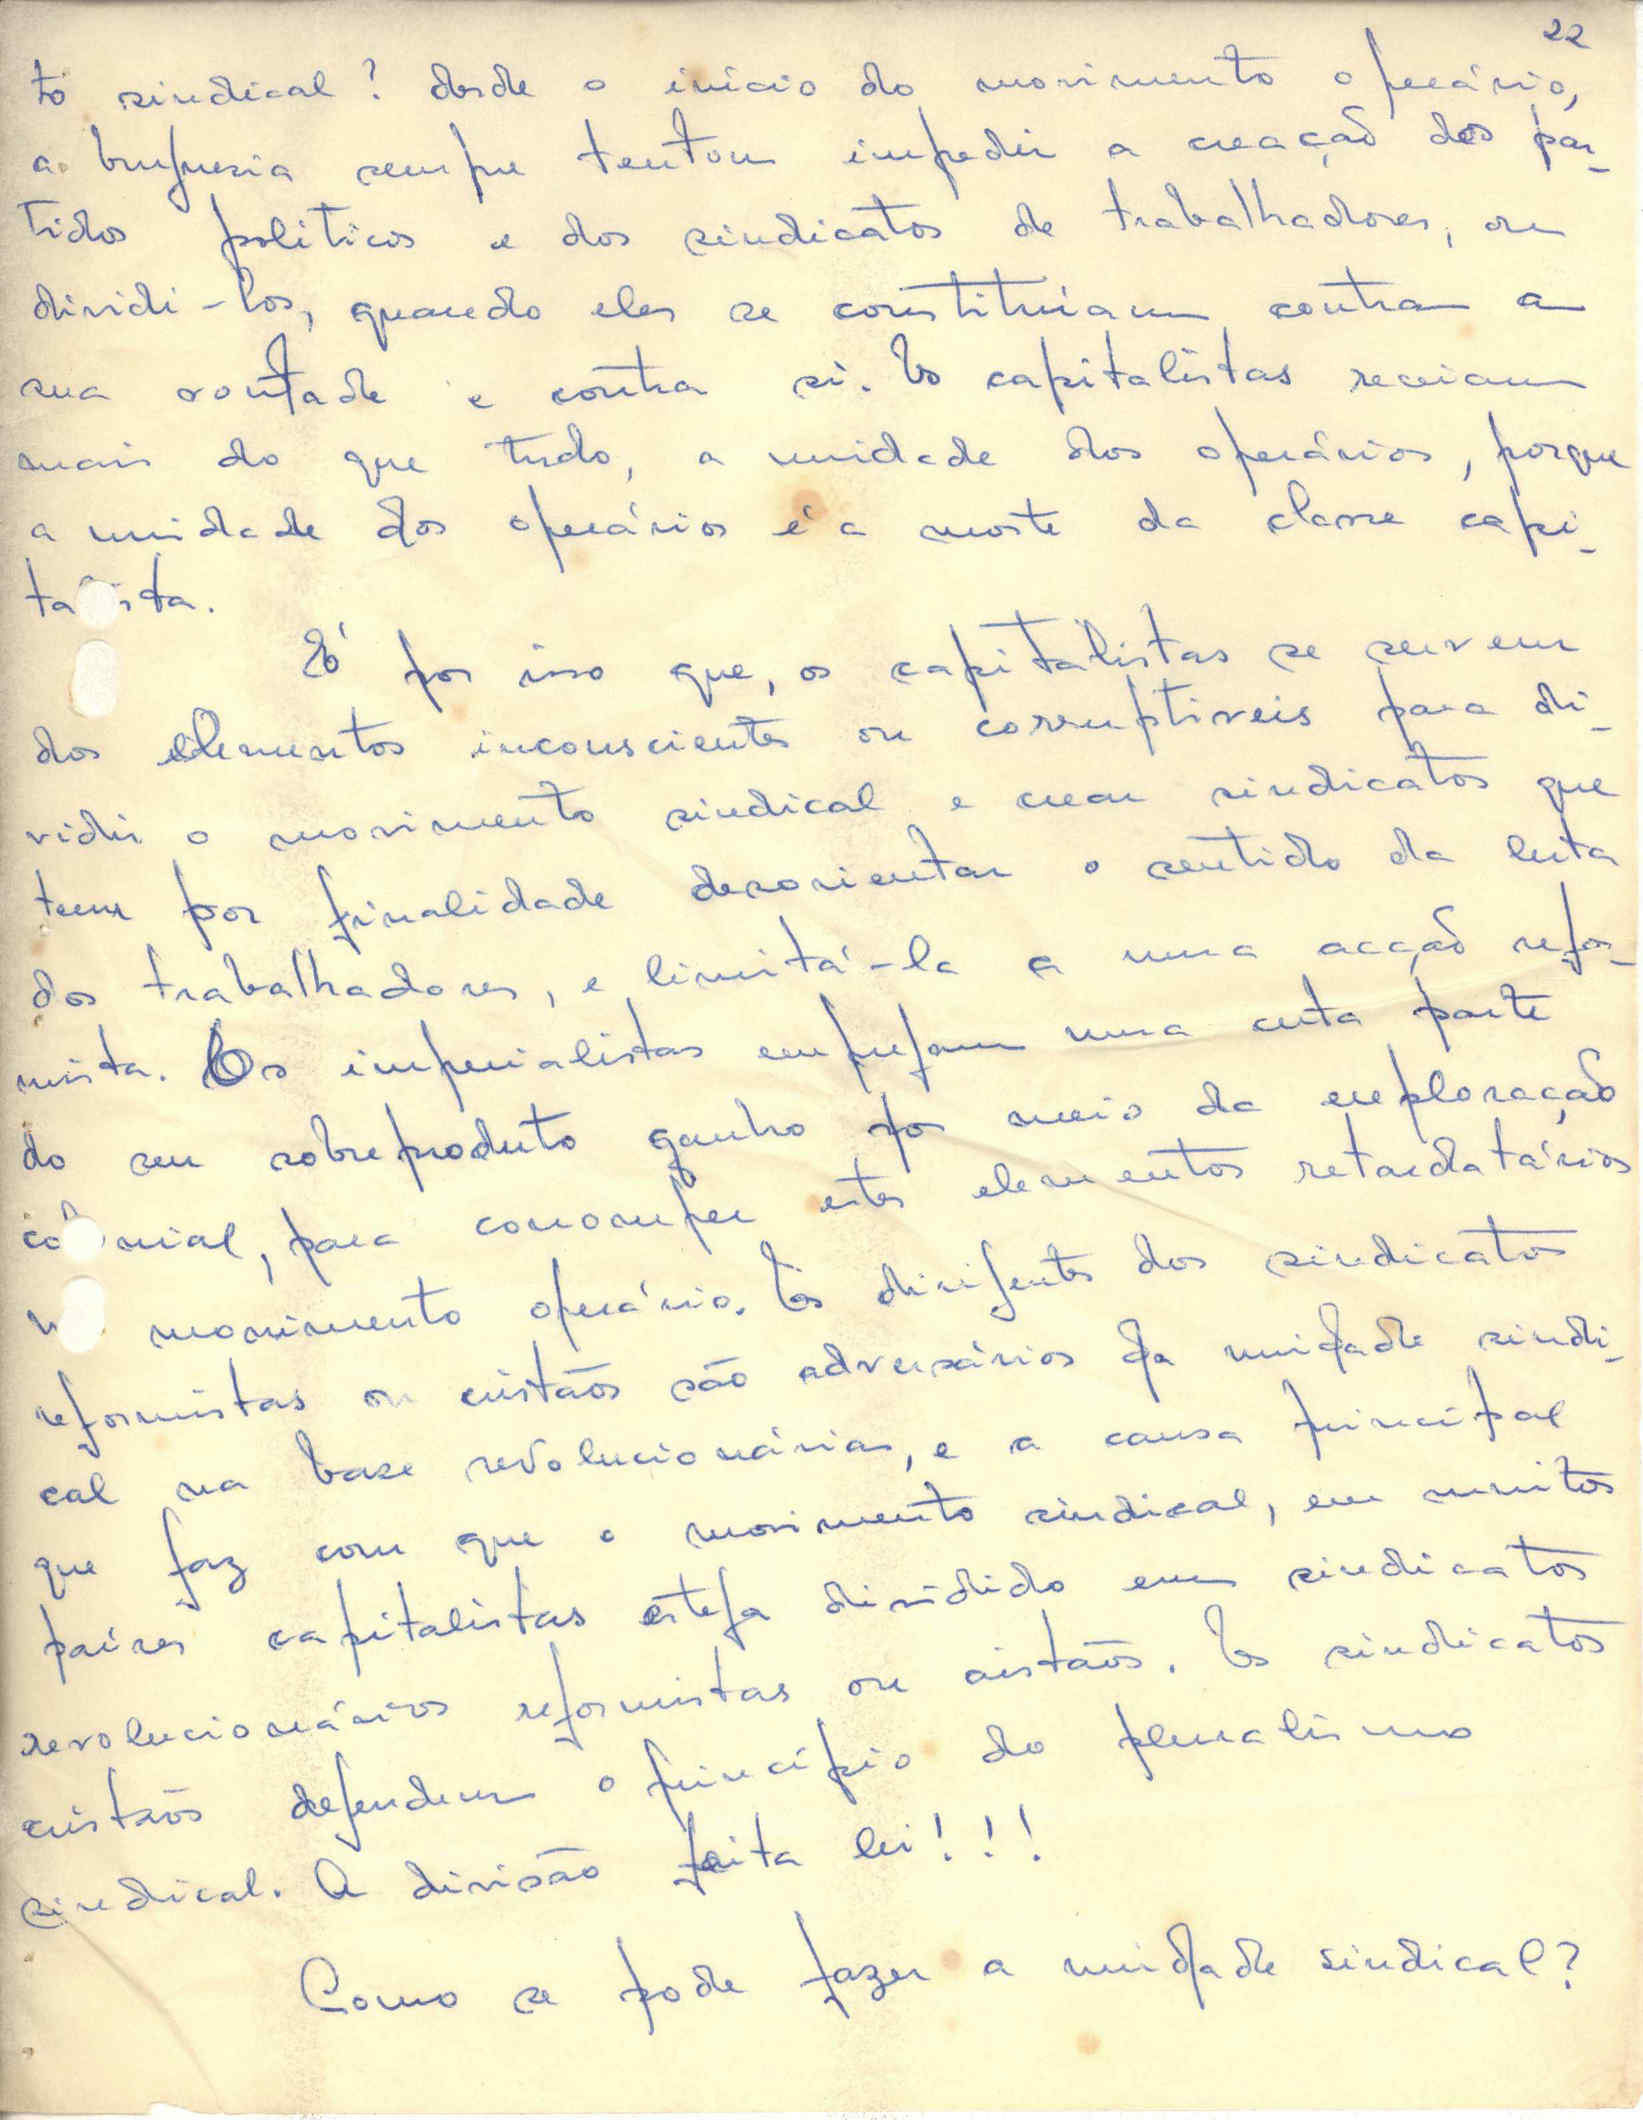 22
to sindical? desde o início do movimento operário,
a burguesia sempre tentou impedir a creação dos par-
tidos politicos e dos sindicatos de trabalhadores, ou
dividi-los, quando eles se constituiam contra a
sua vontade e contra si. Os capitalistas receiam
mais do que tudo, a unidade dos operários, porque
a unidade dos operários é a morte da classe capi-
talista.
É por isso que, os capitalistas se servem
dos elementos inconscientes ou corruptiveis para di-
vidir o movimento sindical e crear sindicatos que
tem por finalidade desorientar o sentido da luta
dos trabalhadores, e limitá-la a uma acção refor-
mista. Os imperialistas empregam uma certa parte
do seu sobreproduto ganho por meio da exploração
colonial, para corromper estes elementos retardatários
no movimento operário. Os dirigentes dos sindicatos
reformistas ou cristãos são adversários da unidade sindi-
cal na base revolucionárias, e a causa principal
que faz com que o movimento sindical, em muitos
paises capitalistas esteja dividido em sindicatos
revolucionários reformistas ou cristãos. Os sindicatos
cristãos defendem o princípio do pluralismo
sindical. A divisão feita lei!!!
Como se pode fazer a unidade sindical?